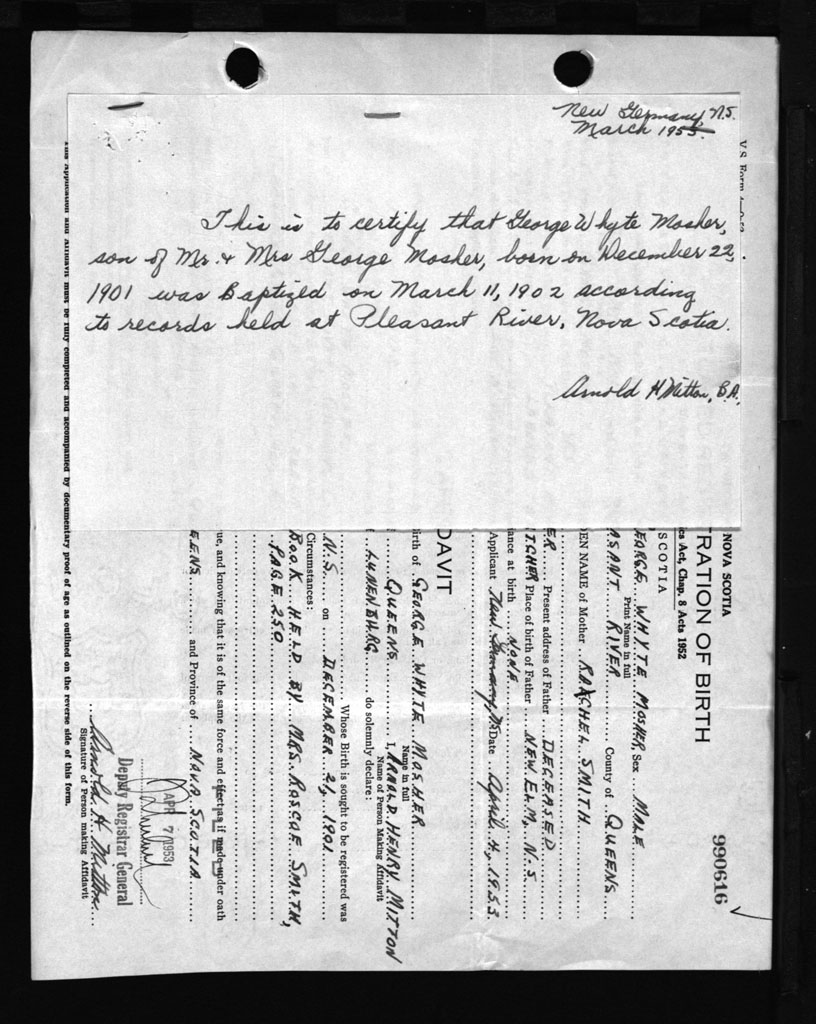 New Germany, N.S.
March 1953.
V.S. Form
This is to certify that George Whyte Mosher,
son of Mr. & Mrs George Mosher, born on December 22,
1901 was Baptized on March 11, 1902 according
to records held at Pleasant River, Nova Scotia.
Arnold H Mitton, B.A.
NOVA SCOTIA
TRATION OF BIRTH
es Act, Chap. 8 Acts 1952
SCOTIA
990616
EORGE WHYTE MOSHER, Sex MALE
Print Name in full
ASANT RIVER County of QUEENS
DEN NAME of Mother RAACHEL SMITH
ER Present address of Father DECEASED
TCHER Place of birth of Father NEW ELM, N.S.
iance at birth NONE
Applicant New Germany, N.S. Date April 4, 1953
DAVIT
irth of GEORGE WHYTE MOSHER
Name in full
QUEENS I, ARNOLD HENRY MITTON
Name of Person Making Affidavit
LUNENBURG do solemnly declare:
Whose Birth is sought to be registered was
N.S. on DECEMBER 21, 1901
Circumstances:
BOOK HELD BY MRS. ROSCOE SMITH,
PAGE 250
ue, and knowing that it is of the same force and effect as if made under oath
EENS and Province of NOVA SCOTIA
APR 7 1953
Deputy Registrar General
Arnold H. Mitton
Signature of Person making Affidavit
This Application and Affidavit must be fully completed and accompanied by documentary proof of age as outlined on the reverse side of this form.